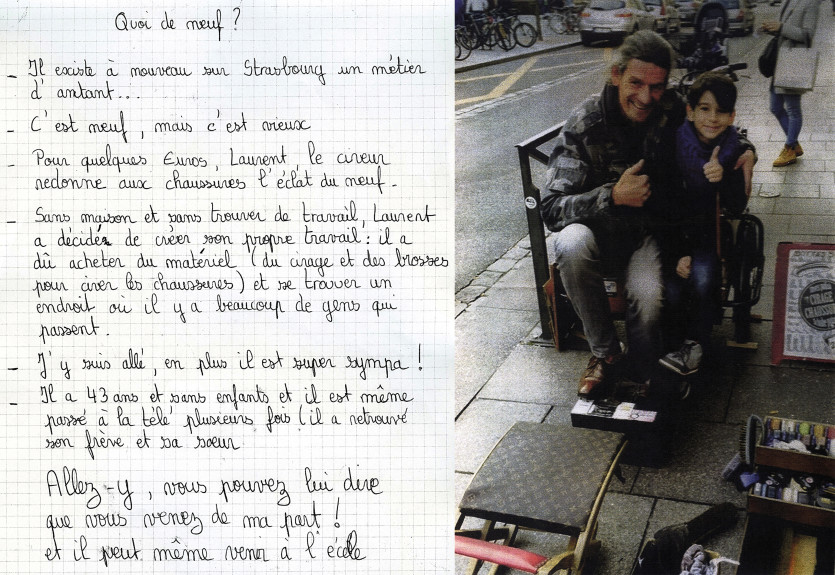 Quoi de neuf ?
- Il existe à nouveau sur Strasbourg un métier
d'antant...
- C'est neuf, mais c'est vieux
- Pour quelques Euros, Laurent, le cireur
redonne aux chaussures l'éclat du neuf.
- Sans maison et sans trouver de travail, Laurent
a décidé de créer son propre travail : il a
dû acheter du matériel (du cirage et des brosses
pour cirer les chaussures) et se trouver un
endroit où il y a beaucoup de gens qui
passent.
- J'y suis allé, en plus il est super sympa !
- Il a 43 ans et sans enfants et il est même
passé à la télé plusieurs fois (il a retrouvé
son frère et sa soeur
Allez-y, vous pouvez lui dire
que vous venez de ma part !
et il peut même venir à l'école
CIRAGE
CHAUSSURES